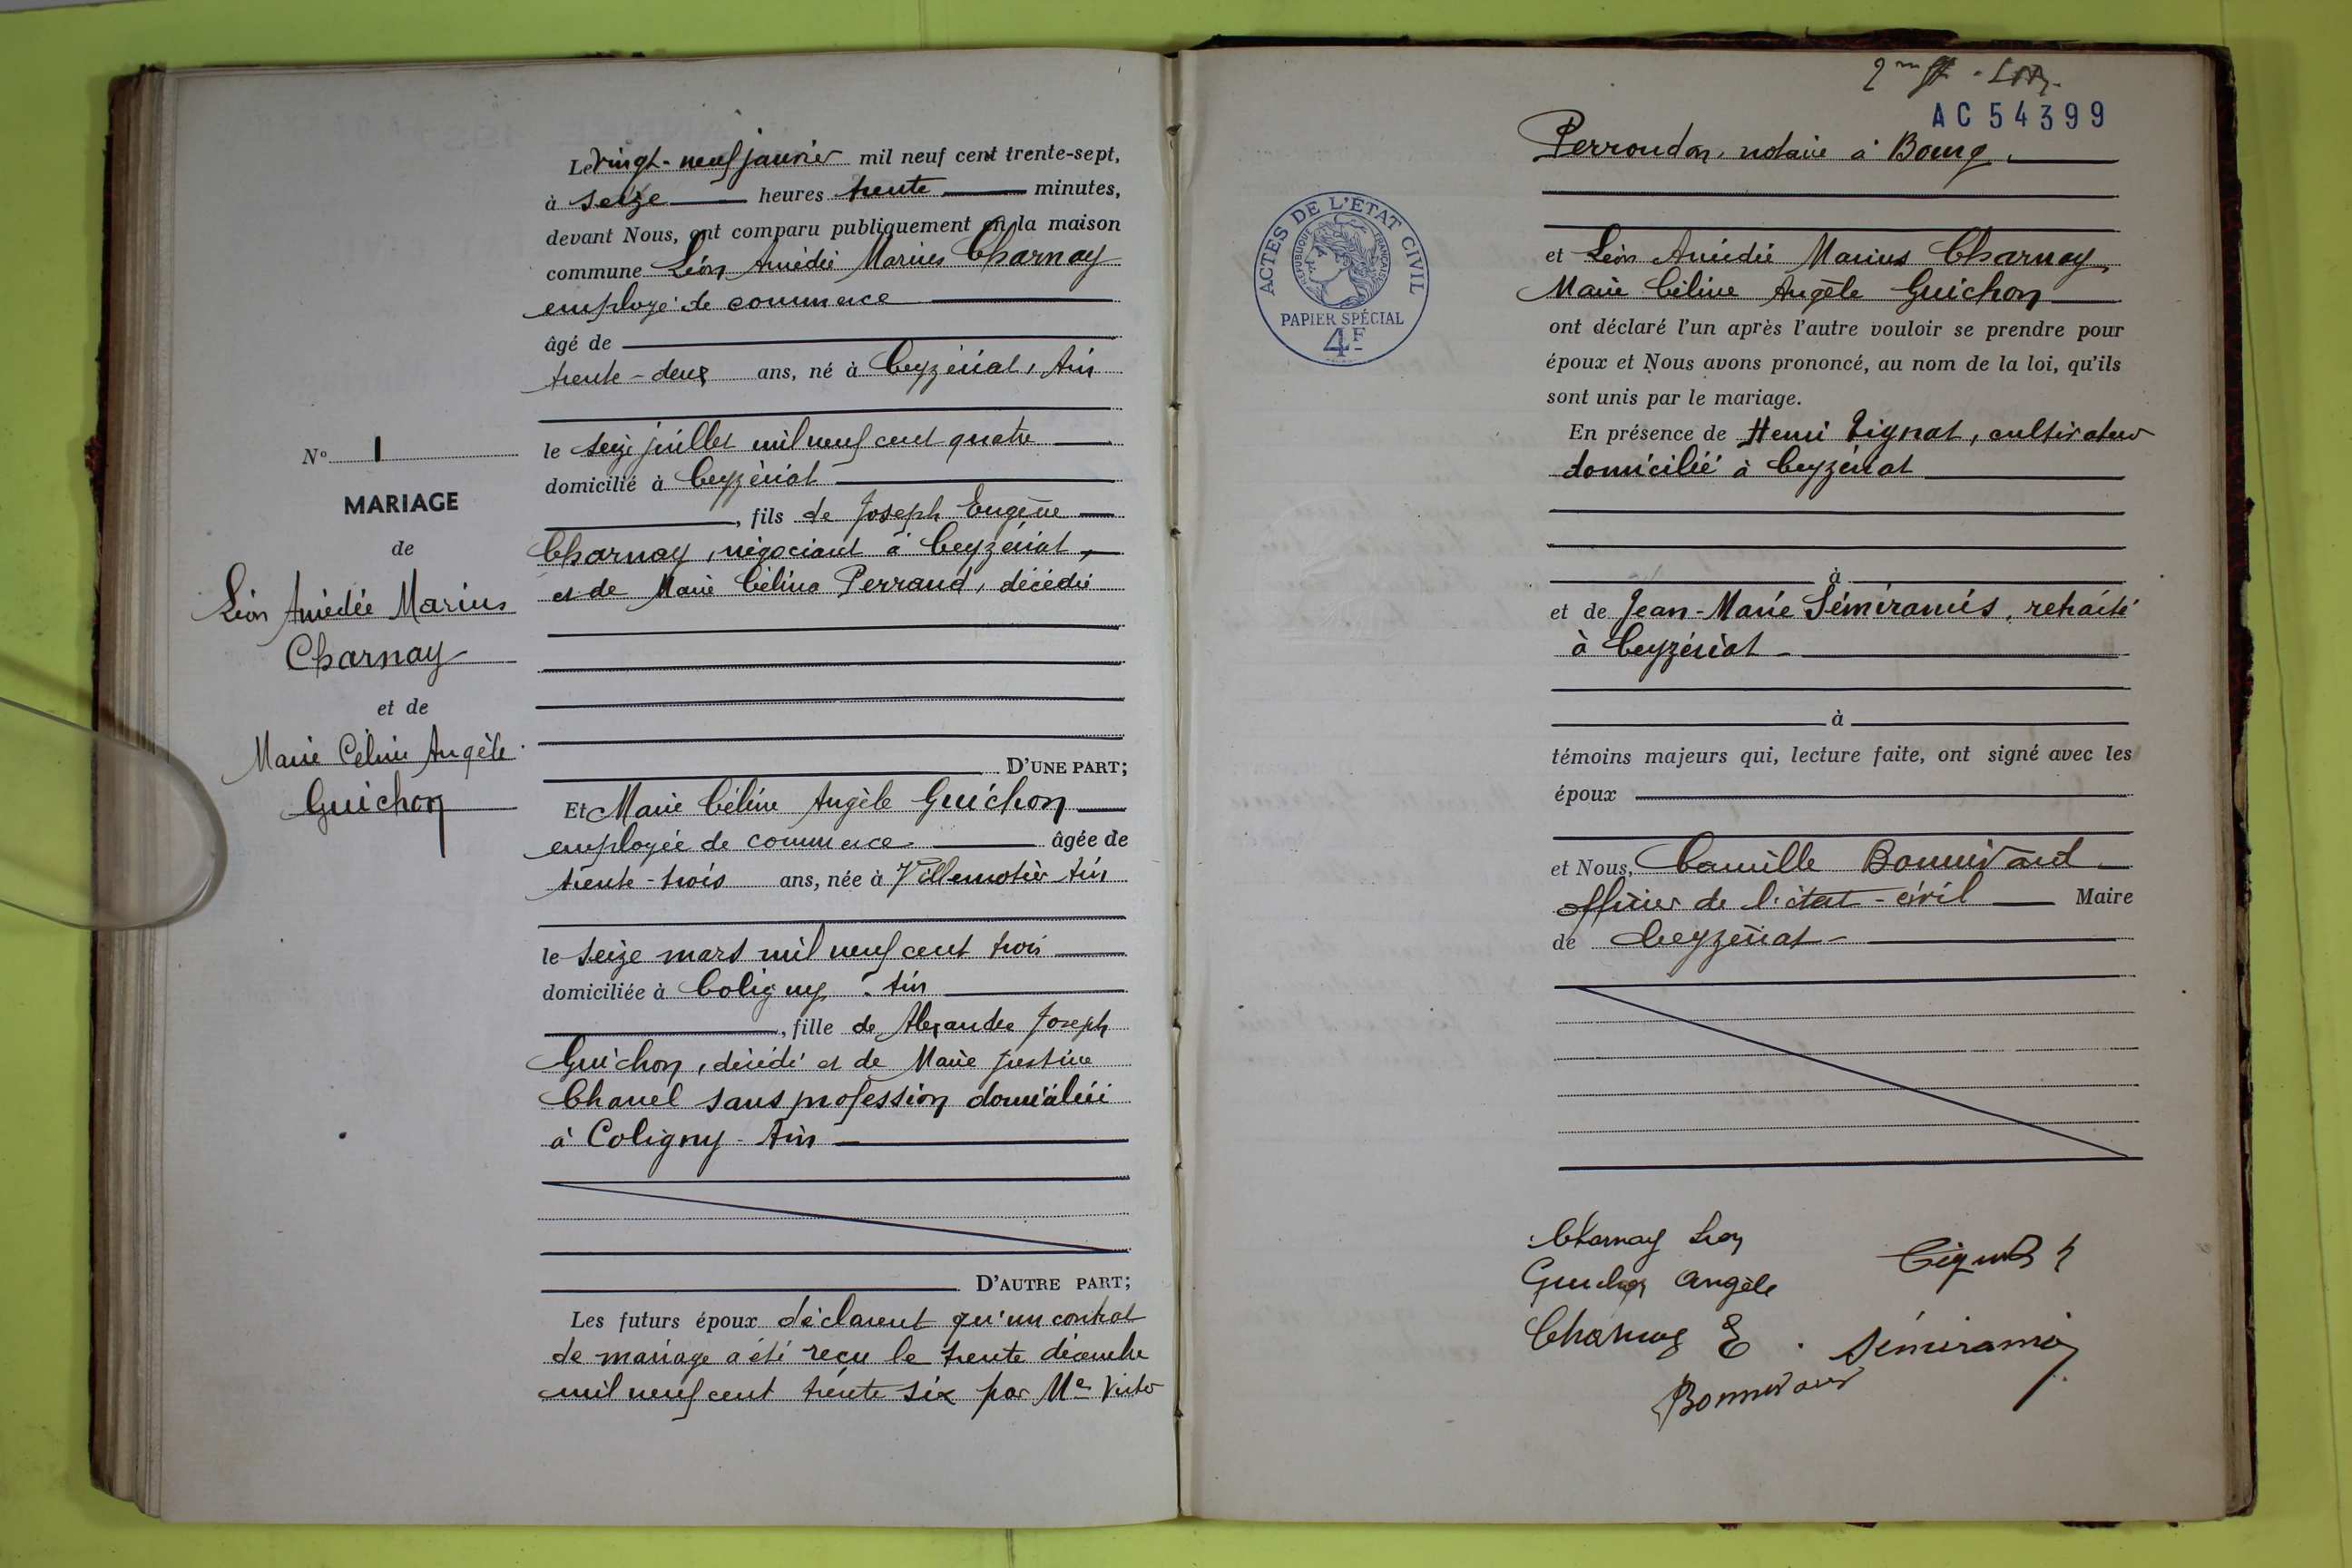 Le vingt-neuf janvier mil neuf cent trente-sept,
à seize heures trente minutes,
devant Nous, ont comparu publiquement en la maison
commune Léon Amédée Marius Charnay
employé de commerce
âgé de
trente-deux ans, né à Ceyzériat, Ain
le seize juillet mil neuf cent quatre
domicilié à Ceyzériat
, fils de Joseph Eugène
Charnay, négociant à Ceyzériat,
et de Marie Célina Perraud, décédée
D'UNE PART;
Et Marie Céline Angèle Guichon
employée de commerce âgée de
trente-trois ans, née à Villemotier Ain
le seize mars mil neuf cent trois
domiciliée à Coligny - Ain
, fille de Alexandre Joseph
Guichon, décédé et de Marie Justine
Chanel sans profession domiciliée
à Coligny - Ain
D'AUTRE PART;
Les futurs époux déclarent qu'un contrat
de mariage a été reçu le trente décembre
mil neuf cent trente six par Me Victor
N° 1
MARIAGE
de
Léon Amédée Marius
Charnay
et de
Marie Céline Angèle
Guichon
AC 54399
Perroudon, notaire à Bourg.
ACTES DE L'ÉTAT CIVIL
RÉPUBLIQUE FRANÇAISE
PAPIER SPÉCIAL
4F
et Léon Amédée Marius Charnay,
Marie Céline Angèle Guichon
ont déclaré l'un après l'autre vouloir se prendre pour
époux et Nous avons prononcé, au nom de la loi, qu'ils
sont unis par le mariage.
En présence de Henri Tignat, cultivateur
domicilié à Ceyzériat
à
et de Jean-Marie Sémiramis, retraité
à Ceyzériat -
à
témoins majeurs qui, lecture faite, ont signé avec les
époux
et Nous, Camille Bonnivard
officier de l'état-civil Maire
de Ceyzériat -
Charnay Léon
Guichon Angèle
Charnay E.
Sémiramis